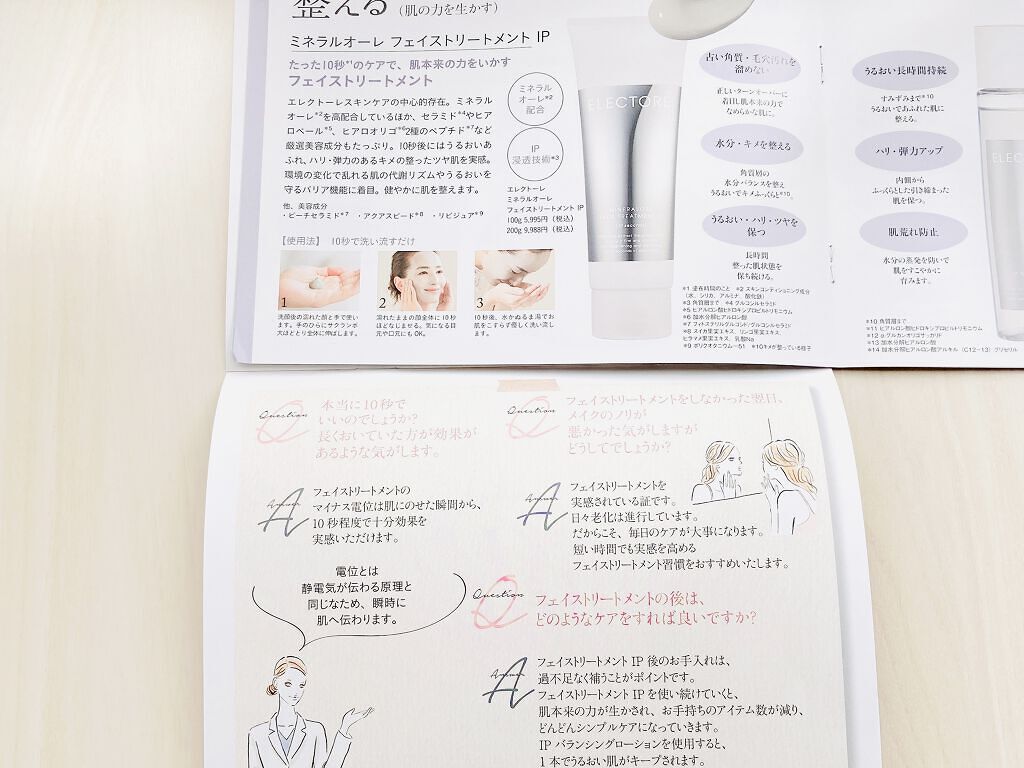 整える（肌の力を生かす）
ミネラルオーレ フェイストリートメント IP
たった10秒*¹のケアで、肌本来の力をいかす
フェイストリートメント
エレクトーレスキンケアの中心的存在。ミネラル
オーレ*²を高配合しているほか、セラミド*⁴やヒア
ロベール*⁵、ヒアロオリゴ*⁶2種のペプチド*⁷など
厳選美容成分もたっぷり。10秒後にはうるおいあ
ふれ、ハリ・弾力のあるキメの整ったツヤ肌を実感。
環境の変化で乱れる肌の代謝リズムやうるおいを
守るバリア機能に着目。健やかに肌を整えます。
他、美容成分
・ビーチセラミド*⁷ ・アクアスピード*⁸ ・リピジュア*⁹
ミネラル
オーレ*²
配合
IP
浸透技術*³
エレクトーレ
ミネラルオーレ
フェイストリートメント IP
100g 5,995円（税込）
200g 9,988円（税込）
【使用法】 10秒で洗い流すだけ
1
洗顔後の濡れた顔と手で使い
ます。手のひらにサクランボ
大ほどとり全体に伸ばします。
2
濡れたままの顔全体に10秒
ほどなじませる。気になる目
元や口元にもOK。
3
10秒後、水かぬるま湯でお
肌をこすらず優しく洗い流し
ます。
ELECTORE
古い角質・毛穴汚れを
溜めない
正しいターンオーバーに
着目し肌本来の力で
なめらかな肌に。
水分・キメを整える
角質層の
水分バランスを整え
うるおいでキメふっくらと*¹⁰。
うるおい・ハリ・ツヤを
保つ
長時間
整った肌状態を
保ち続ける。
*1 塗布時間のこと *2 スキンコンディショニング成分
（水、シリカ、アルミナ、酸化鉄）
*3 角質層まで *4 グルコシルセラミド
*5 ヒアルロン酸ヒドロキシプロピルトリモニウム
*6 加水分解ヒアルロン酸
*7 フィトステリルグルコシド/グルコシルセラミド
*8 スイカ果実エキス、リンゴ果実エキス、
ヒラマメ果実エキス、乳酸Na
*9 ポリクオタニウム-51 *10キメが整っている様子
うるおい長時間持続
すみずみまで*¹⁰
うるおいであふれた肌に
整える。
ハリ・弾力アップ
内側から
ふっくらとした引き締まった
肌を保つ。
肌荒れ防止
水分の蒸発を防いで
肌をすこやかに
育みます。
*10 角質層まで
*11 ヒアルロン酸ヒドロキシプロピルトリモニウム
*12 α グルカンオリゴサッカリド
*13 加水分解ヒアルロン酸
*14 加水分解ヒアルロン酸アルキル（C12-13）グリセリル
ELEC
Question
Q
本当に10秒で
いいのでしょうか?
長くおいていた方が効果が
あるような気がします。
Answer
A
フェイストリートメントの
マイナス電位は肌にのせた瞬間から、
10 秒程度で十分効果を
実感いただけます。
電位とは
静電気が伝わる原理と
同じなため、瞬時に
肌へ伝わります。
Question
Q
フェイストリートメントをしなかった翌日、
メイクのノリが
悪かった気がしますが
どうしてでしょうか?
Answer
A
フェイストリートメントを
実感されている証です。
日々老化は進行しています。
だからこそ、毎日のケアが大事になります。
短い時間でも実感を高める
フェイストリートメント習慣をおすすめいたします。
Question
Q
フェイストリートメントの後は、
どのようなケアをすれば良いですか?
Answer
A
フェイストリートメント IP 後のお手入れは、
過不足なく補うことがポイントです。
フェイストリートメント IP を使い続けていくと、
肌本来の力が生かされ、お手持ちのアイテム数が減り、
どんどんシンプルケアになっていきます。
IP バランシングローションを使用すると、
1 本でうるおい肌がキープされます。